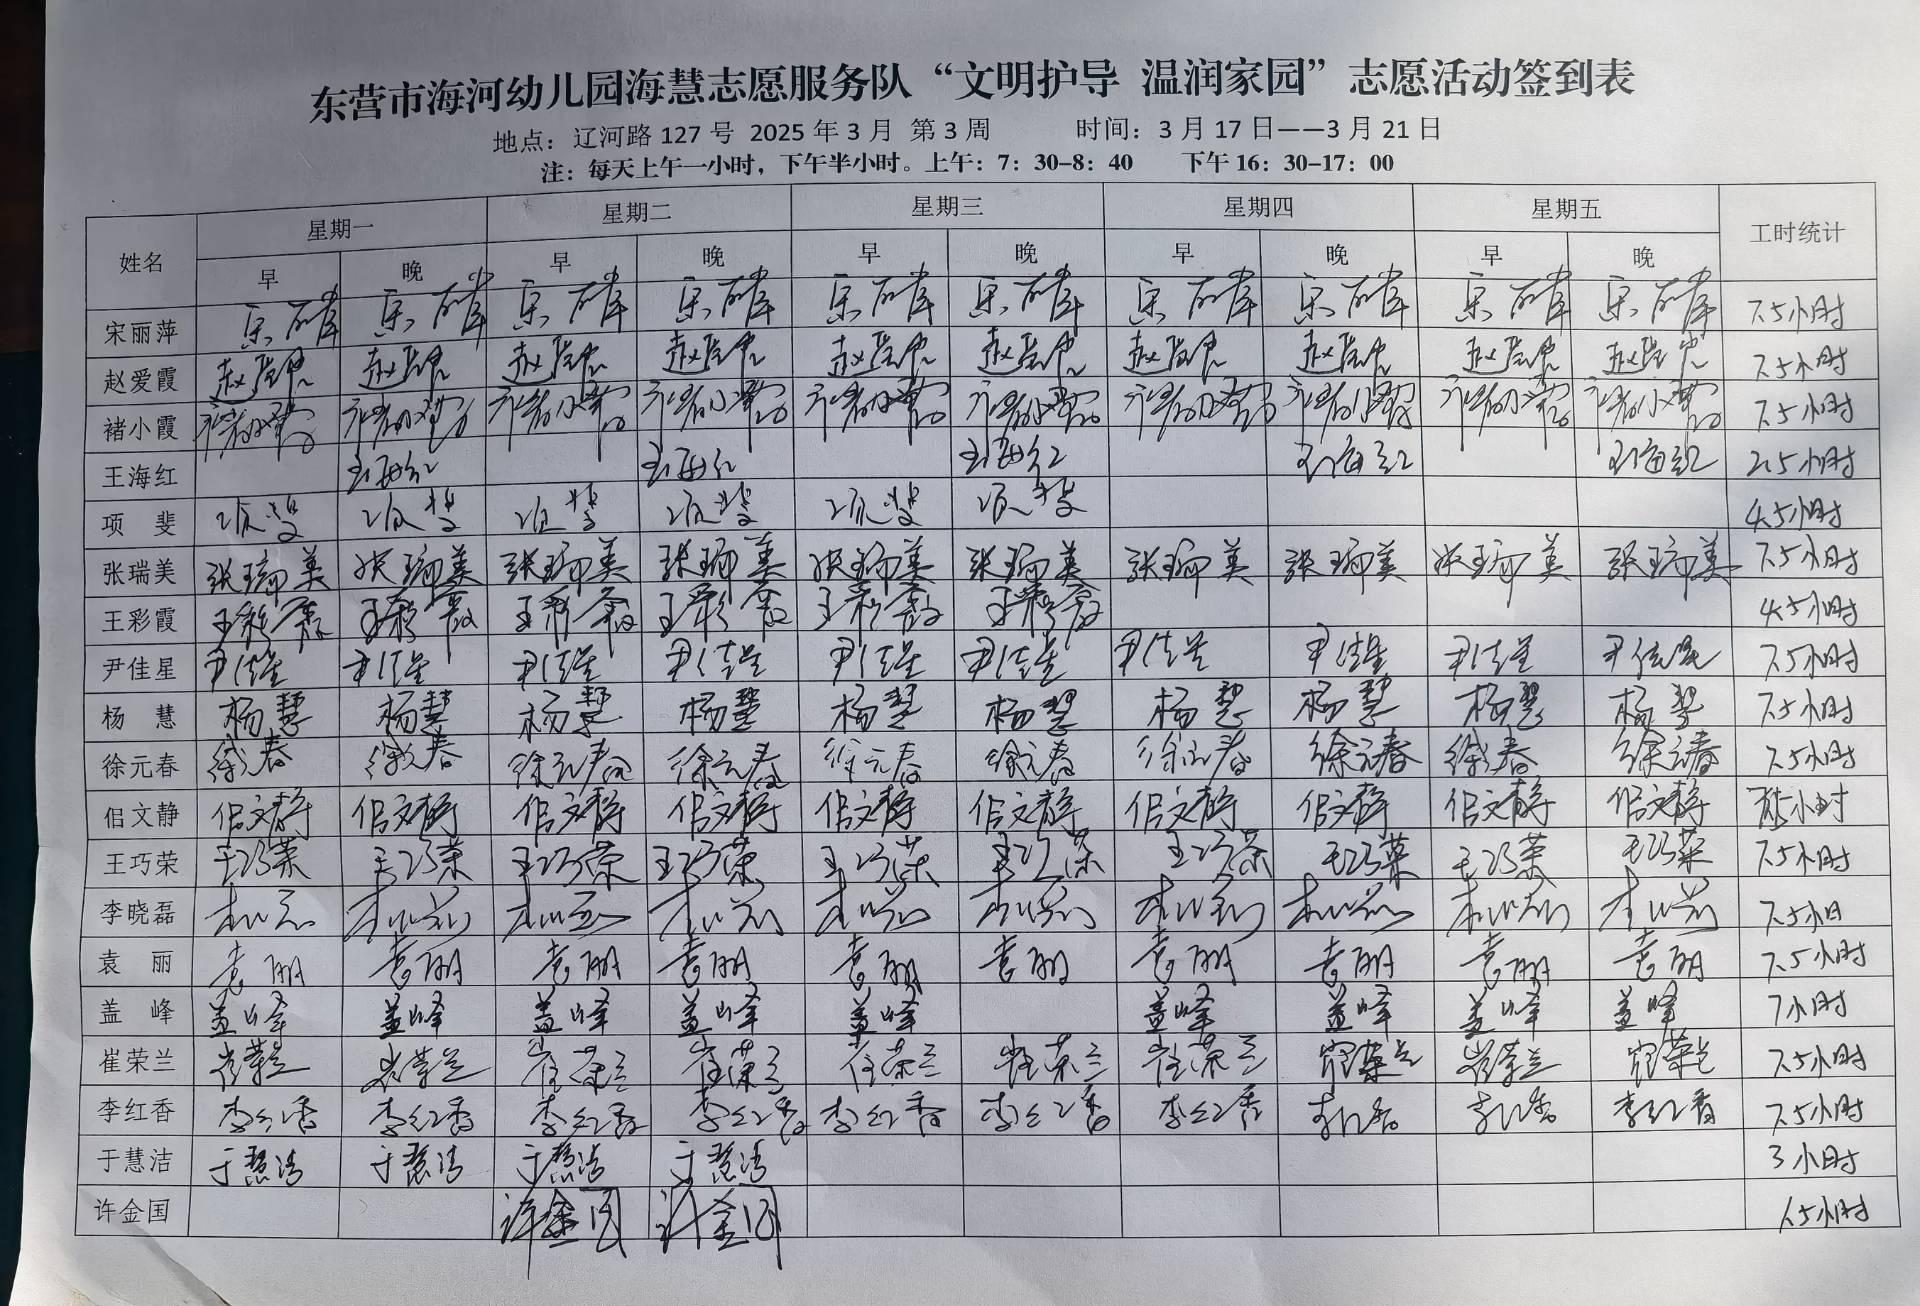 东营市海河幼儿园海慧志愿服务队“文明护导 温润家园”志愿活动签到表
地点：辽河路 127 号 2025 年 3 月 第 3 周 时间：3 月 17 日——3 月 21 日
注：每天上午一小时，下午半小时。上午：7：30-8：40 下午 16：30-17：00
姓名 星期一 星期二 星期三 星期四 星期五 工时统计
早 晚 早 晚 早 晚 早 晚 早 晚
宋丽萍 宋丽萍 宋丽萍 宋丽萍 宋丽萍 宋丽萍 宋丽萍 宋丽萍 宋丽萍 宋丽萍 宋丽萍 7.5小时
赵爱霞 赵爱霞 赵爱霞 赵爱霞 赵爱霞 赵爱霞 赵爱霞 赵爱霞 赵爱霞 赵爱霞 赵爱霞 7.5小时
褚小霞 褚小霞 褚小霞 褚小霞 褚小霞 褚小霞 褚小霞 褚小霞 褚小霞 褚小霞 褚小霞 7.5小时
王海红 王海红 王海红 王海红 王海红 王海红 2.5小时
项 斐 项斐 项斐 项斐 项斐 项斐 项斐 4.5小时
张瑞美 张瑞美 张瑞美 张瑞美 张瑞美 张瑞美 张瑞美 张瑞美 张瑞美 张瑞美 张瑞美 7.5小时
王彩霞 王彩霞 王彩霞 王彩霞 王彩霞 王彩霞 王彩霞 4.5小时
尹佳星 尹佳星 尹佳星 尹佳星 尹佳星 尹佳星 尹佳星 尹佳星 尹佳星 尹佳星 尹佳星 7.5小时
杨 慧 杨慧 杨慧 杨慧 杨慧 杨慧 杨慧 杨慧 杨慧 杨慧 杨慧 7.5小时
徐元春 徐元春 徐元春 徐元春 徐元春 徐元春 徐元春 徐元春 徐元春 徐元春 徐元春 7.5小时
佀文静 佀文静 佀文静 佀文静 佀文静 佀文静 佀文静 佀文静 佀文静 佀文静 佀文静 7.5小时
王巧荣 王巧荣 王巧荣 王巧荣 王巧荣 王巧荣 王巧荣 王巧荣 王巧荣 王巧荣 王巧荣 7.5小时
李晓磊 李晓磊 李晓磊 李晓磊 李晓磊 李晓磊 李晓磊 李晓磊 李晓磊 李晓磊 李晓磊 7.5小日
袁 丽 袁丽 袁丽 袁丽 袁丽 袁丽 袁丽 袁丽 袁丽 袁丽 袁丽 7.5小时
盖 峰 盖峰 盖峰 盖峰 盖峰 盖峰 盖峰 盖峰 盖峰 盖峰 7小时
崔荣兰 崔荣兰 崔荣兰 崔荣兰 崔荣兰 崔荣兰 崔荣兰 崔荣兰 崔荣兰 崔荣兰 崔荣兰 7.5小时
李红香 李红香 李红香 李红香 李红香 李红香 李红香 李红香 李红香 李红香 李红香 7.5小时
于慧洁 于慧洁 于慧洁 于慧洁 于慧洁 3小时
许金国 许金国 许金国 1.5小时